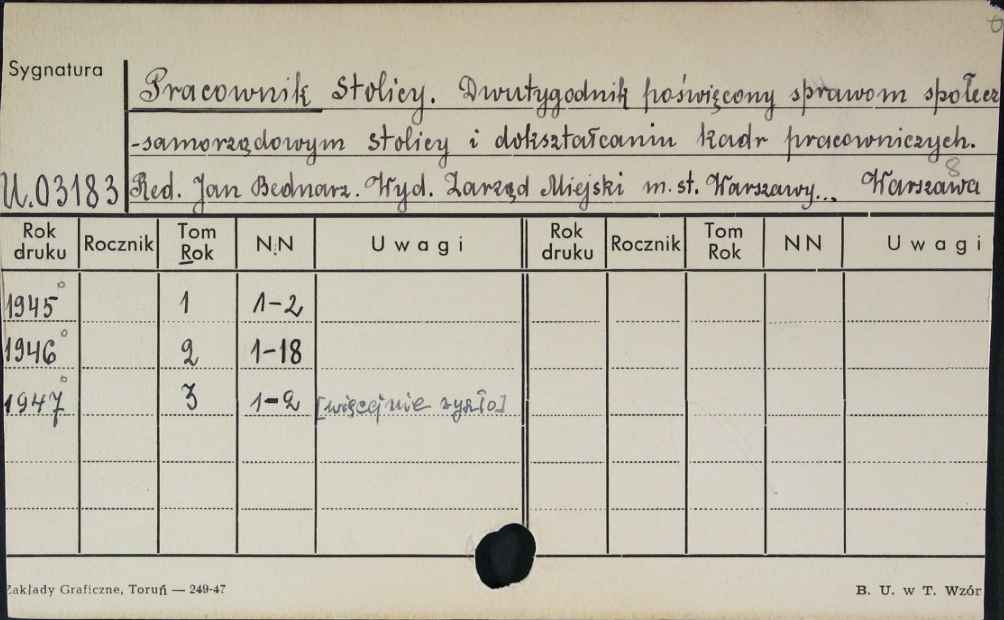 Sygnatura
Pracownik Stolicy. Dwutygodnik poświęcony sprawom społecz
-samorządowym stolicy i dokształcaniu kadr pracowniczych.
U.03183 Red. Jan Bednarz. Wyd. Zarząd Miejski m. st. Warszawy... Warszawa
8
Rok druku Rocznik Tom Rok N.N Uwagi Rok druku Rocznik Tom Rok NN Uwagi
1945° 1 1-2
1946° 2 1-18
1947° 3 1-2 [więcej nie wyszło]
Zakłady Graficzne, Toruń — 249-47 B. U. w T. Wzór